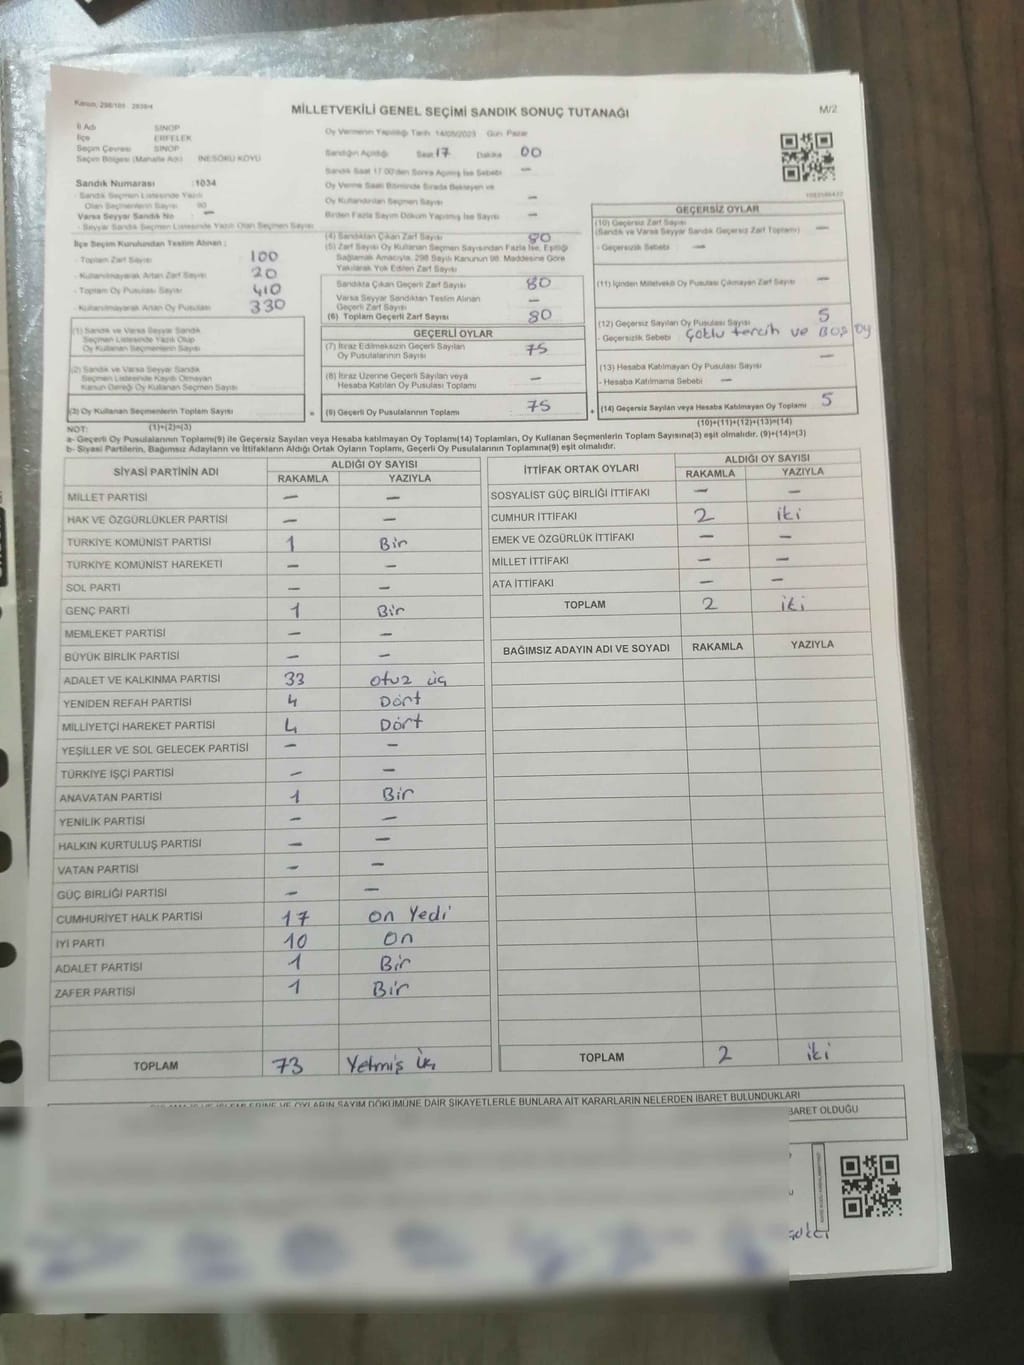 MİLLETVEKİLİ GENEL SEÇİMİ SANDIK SONUÇ TUTANAĞI
M/2
İl Adı SİNOP
İlçe ERFELEK
Seçim Çevresi SİNOP
Seçim Bölgesi (Mahalle Adı) İNESÖKÜ KÖYÜ
Sandık Numarası :1034
- Sandık Seçmen Listesinde Yazılı
Olan Seçmenlerin Sayısı 90
Varsa Seyyar Sandık No —
- Seyyar Sandık Seçmen Listesinde Yazılı Olan Seçmen Sayısı
İlçe Seçim Kurulundan Teslim Alınan ;
- Toplam Zarf Sayısı 100
- Kullanılmayarak Artan Zarf Sayısı 20
- Toplam Oy Pusulası Sayısı 410
- Kullanılmayarak Artan Oy Pusulası 330
(1) Sandık ve Varsa Seyyar Sandık
Seçmen Listesinde Yazılı Olup
Oy Kullanan Seçmenlerin Sayısı
(2) Sandık ve Varsa Seyyar Sandık
Seçmen Listesinde Kayıtlı Olmayan
Kanun Gereği Oy Kullanan Seçmen Sayısı
(3) Oy Kullanan Seçmenlerin Toplam Sayısı =
(1)+(2)=(3)
Oy Vermenin Yapıldığı Tarih 14/05/2023 Gün Pazar
Sandığın Açıldığı Saat 17 Dakika 00
Sandık Saat 17.00'den Sonra Açılmış İse Sebebi —
Oy Verme Saati Bitiminde Sırada Bekleyen ve
Oy Kullandırılan Seçmen Sayısı —
Birden Fazla Sayım Döküm Yapılmış İse Sayısı —
(4) Sandıktan Çıkan Zarf Sayısı 80
(5) Zarf Sayısı Oy Kullanan Seçmen Sayısından Fazla İse, Eşitliği
Sağlamak Amacıyla, 298 Sayılı Kanunun 98. Maddesine Göre
Yakılarak Yok Edilen Zarf Sayısı
Sandıkta Çıkan Geçerli Zarf Sayısı 80
Varsa Seyyar Sandıktan Teslim Alınan
Geçerli Zarf Sayısı —
(6) Toplam Geçerli Zarf Sayısı 80
GEÇERLİ OYLAR
(7) İtiraz Edilmeksizin Geçerli Sayılan
Oy Pusulalarının Sayısı 75
(8) İtiraz Üzerine Geçerli Sayılan veya
Hesaba Katılan Oy Pusulası Toplamı —
(9) Geçerli Oy Pusulalarının Toplamı 75 +
GEÇERSİZ OYLAR
(10) Geçersiz Zarf Sayısı
(Sandık ve Varsa Seyyar Sandık Geçersiz Zarf Toplamı) —
- Geçersizlik Sebebi —
(11) İçinden Milletvekili Oy Pusulası Çıkmayan Zarf Sayısı —
(12) Geçersiz Sayılan Oy Pusulası Sayısı 5
- Geçersizlik Sebebi Çoklu tercih ve Boş oy
(13) Hesaba Katılmayan Oy Pusulası Sayısı —
- Hesaba Katılmama Sebebi —
(14) Geçersiz Sayılan veya Hesaba Katılmayan Oy Toplamı 5
(10)+(11)+(12)+(13)=(14)
NOT:
a- Geçerli Oy Pusulalarının Toplamı(9) ile Geçersiz Sayılan veya Hesaba katılmayan Oy Toplamı(14) Toplamları, Oy Kullanan Seçmenlerin Toplam Sayısına(3) eşit olmalıdır. (9)+(14)=(3)
b- Siyasi Partilerin, Bağımsız Adayların ve İttifakların Aldığı Ortak Oyların Toplamı, Geçerli Oy Pusulalarının Toplamına(9) eşit olmalıdır.
SİYASİ PARTİNİN ADI ALDIĞI OY SAYISI
RAKAMLA YAZIYLA
MİLLET PARTİSİ — —
HAK VE ÖZGÜRLÜKLER PARTİSİ — —
TÜRKİYE KOMÜNİST PARTİSİ 1 Bir
TÜRKİYE KOMÜNİST HAREKETİ — —
SOL PARTİ — —
GENÇ PARTİ 1 Bir
MEMLEKET PARTİSİ — —
BÜYÜK BİRLİK PARTİSİ — —
ADALET VE KALKINMA PARTİSİ 33 otuz üç
YENİDEN REFAH PARTİSİ 4 Dört
MİLLİYETÇİ HAREKET PARTİSİ 4 Dört
YEŞİLLER VE SOL GELECEK PARTİSİ — —
TÜRKİYE İŞÇİ PARTİSİ — —
ANAVATAN PARTİSİ 1 Bir
YENİLİK PARTİSİ — —
HALKIN KURTULUŞ PARTİSİ — —
VATAN PARTİSİ — —
GÜÇ BİRLİĞİ PARTİSİ — —
CUMHURİYET HALK PARTİSİ 17 on Yedi
İYİ PARTİ 10 On
ADALET PARTİSİ 1 Bir
ZAFER PARTİSİ 1 Bir
TOPLAM 73 Yetmiş üç
İTTİFAK ORTAK OYLARI ALDIĞI OY SAYISI
RAKAMLA YAZIYLA
SOSYALİST GÜÇ BİRLİĞİ İTTİFAKI — —
CUMHUR İTTİFAKI 2 iki
EMEK VE ÖZGÜRLÜK İTTİFAKI — —
MİLLET İTTİFAKI — —
ATA İTTİFAKI — —
TOPLAM 2 iki
BAĞIMSIZ ADAYIN ADI VE SOYADI RAKAMLA YAZIYLA
TOPLAM 2 iki
OYLARIN SAYIM DÖKÜMÜNE DAİR ŞİKAYETLERLE BUNLARA AİT KARARLARIN NELERDEN İBARET BULUNDUKLARI
İBARET OLDUĞU